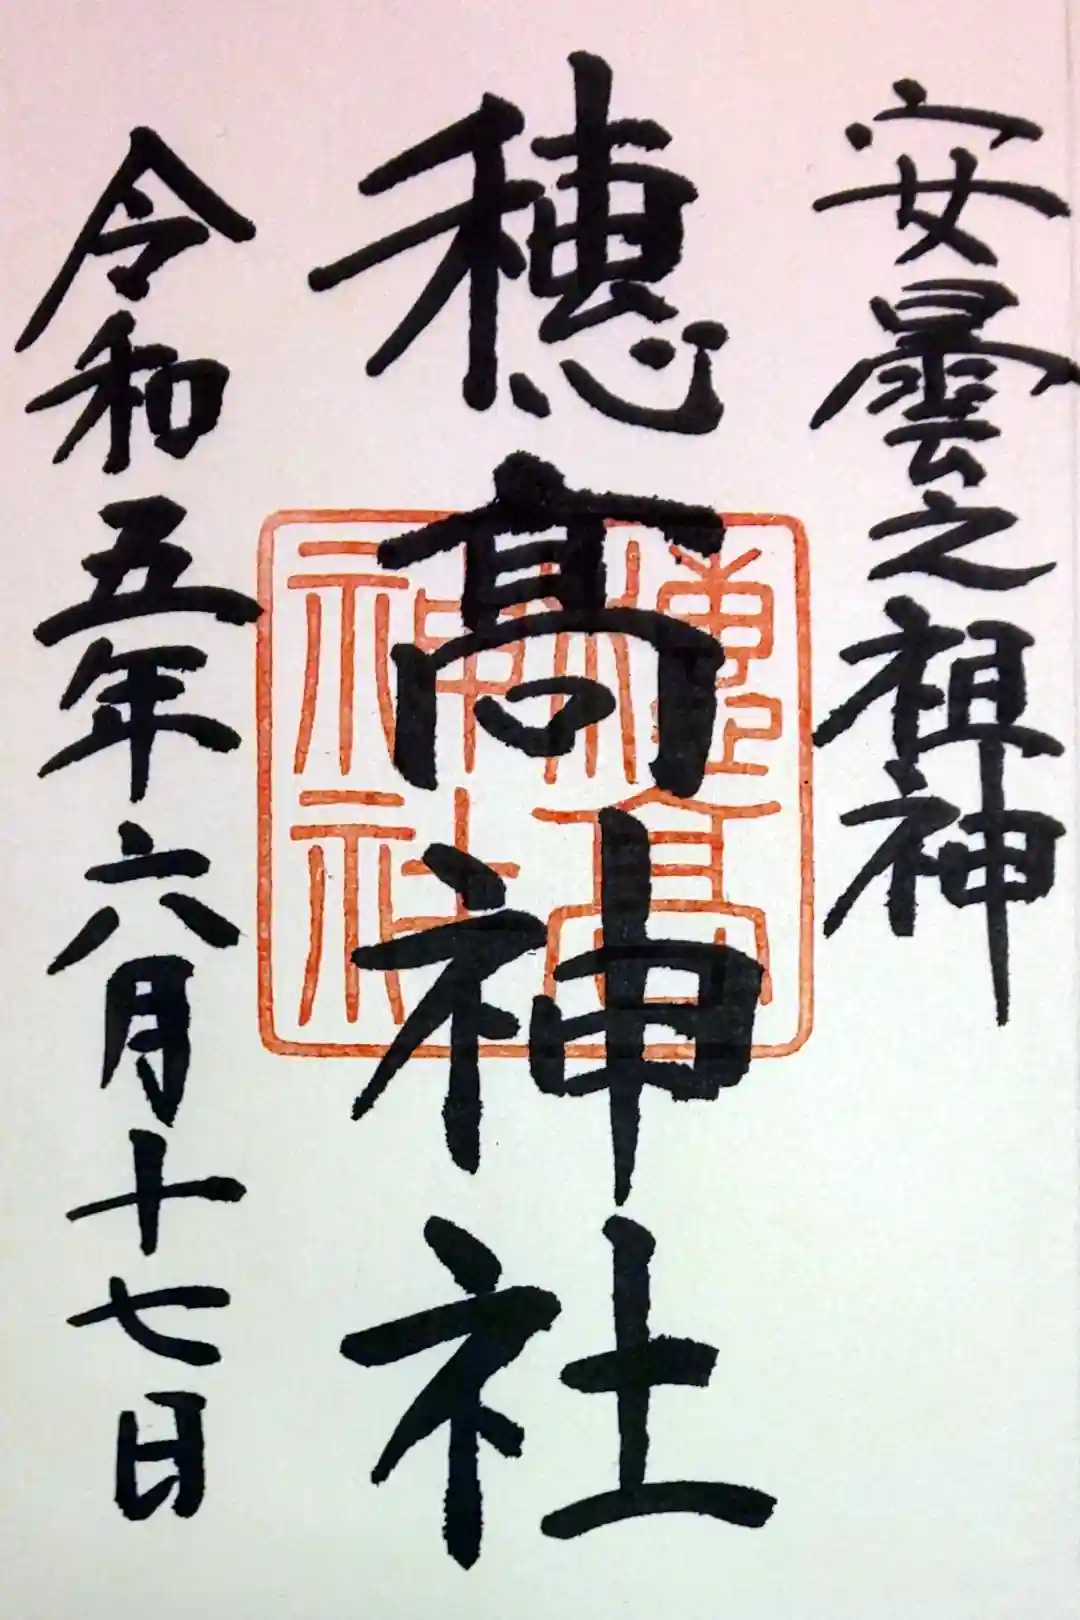 安曇之祖神
穂髙神社
穗高神社
令和五年六月十七日